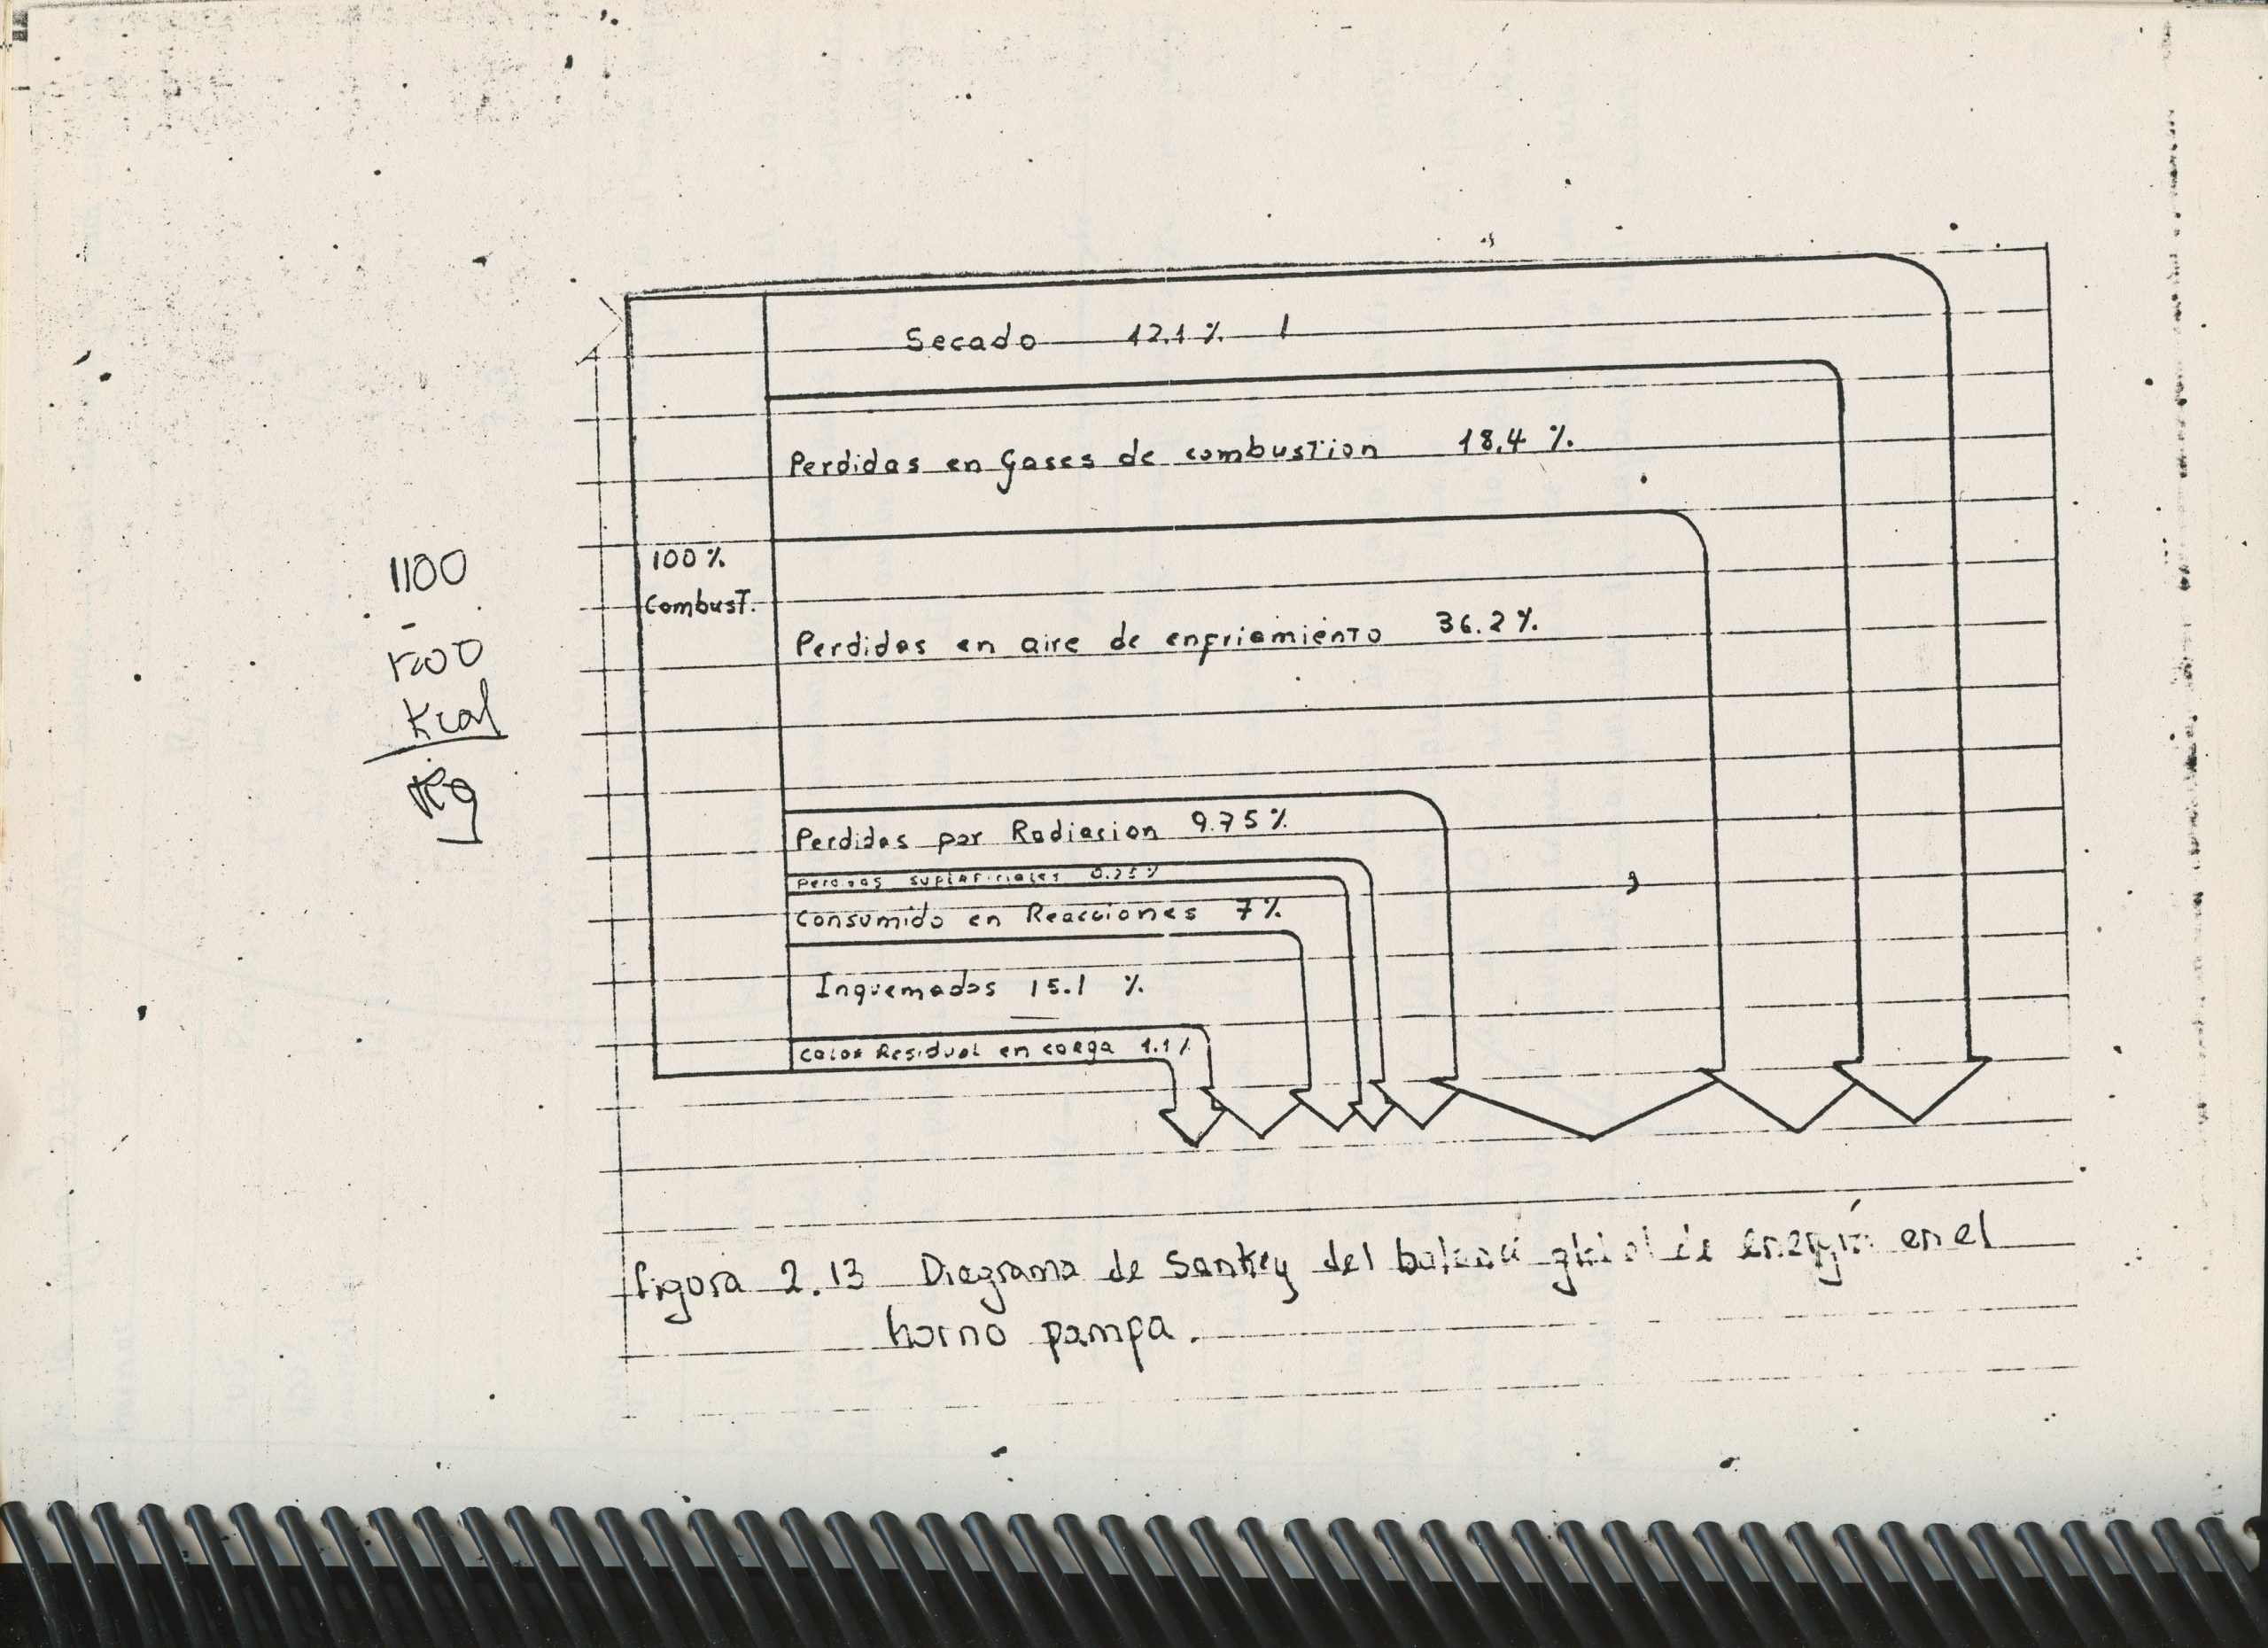 Secado 12.1 %
Perdidas en Gases de combustion 18.4 %.
100 %
Combust.
Perdidas en aire de enfriamiento 36.2 %.
Perdidas por Radiacion 9.75 %
Perdidas superficiales 0.25 %
Consumido en Reacciones 7 %
Inquemados 15.1 %.
Calor Residual en carga 1.1 %
1100
-
Kcal
Kg
figura 2.13 Diagrama de Sankey del global de energía en el
horno pampa.